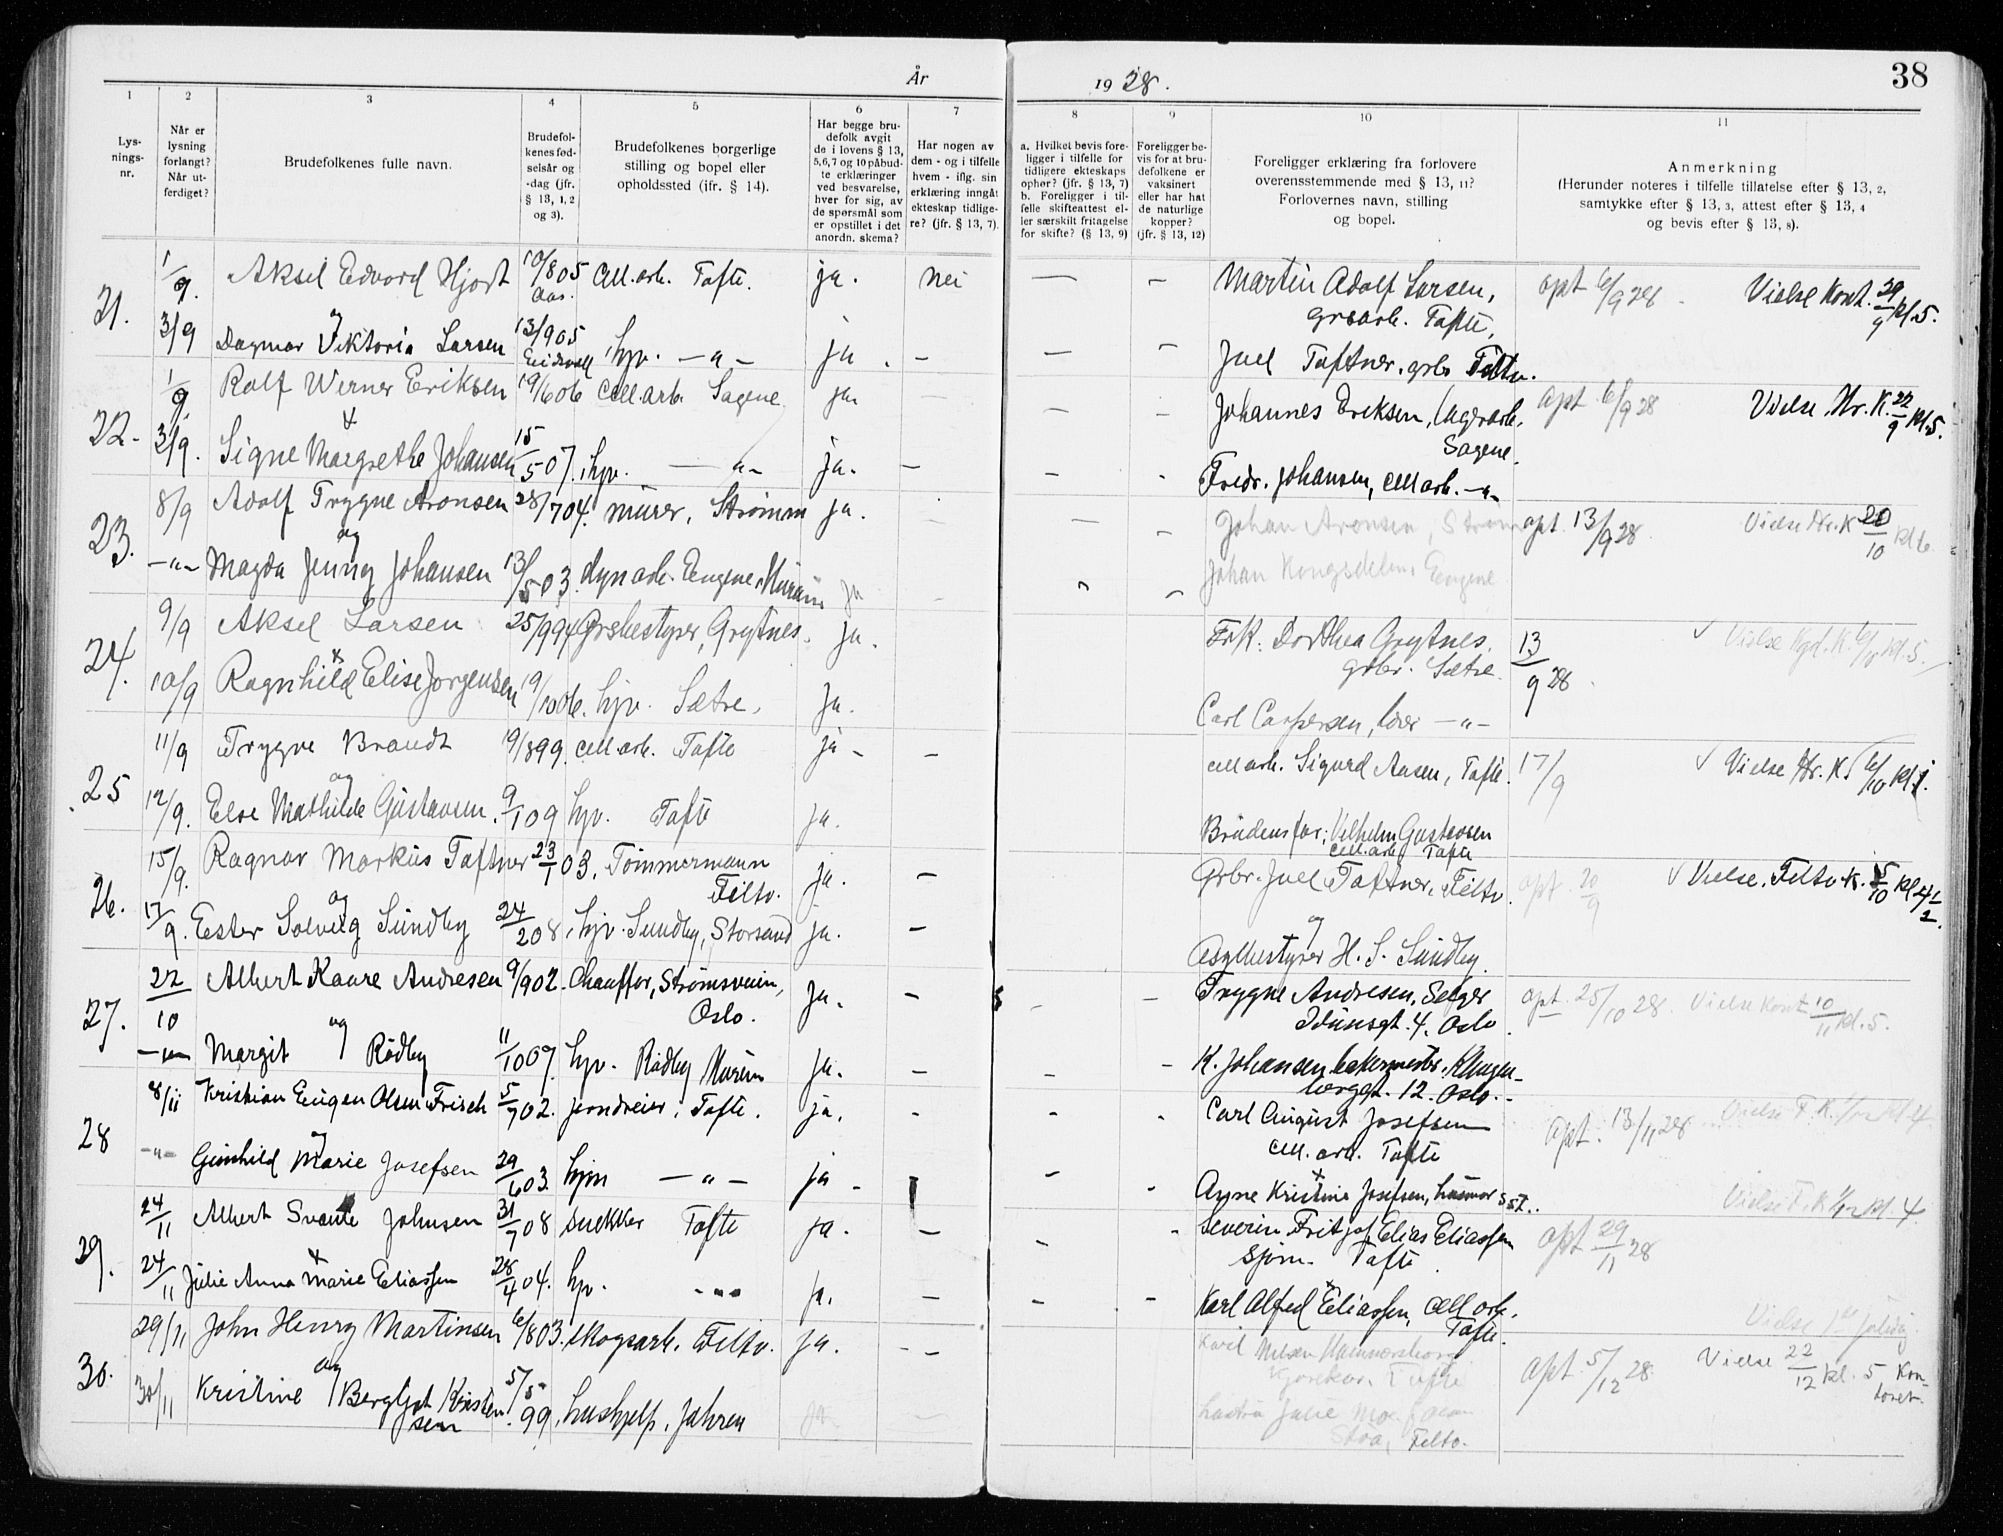 År 1928.
38
1
2
3
4
5
6
7
8
9
10
11
Lys-
nings-
nr.
Når er
lysning
forlangt?
Når ut-
ferdiget?
Brudefolkenes fulle navn.
Brudefol-
kenes fød-
selsår og
-dag (jfr.
§ 13, 1, 2
og 3).
Brudefolkenes borgerlige
stilling og bopel eller
opholdssted (ifr. § 14).
Har begge bru-
defolk avgit
de i lovens § 13,
5,6,7 og 10 påbud-
te erklæringer
ved besvarelse,
hver for sig, av
de spørsmål som
er opstillet i det
anordn. skema?
Har nogen av
dem - og i tilfelle
hvem - iflg. sin
erklæring inngåt
ekteskap tidlige-
re? (jfr. § 13, 7).
a. Hvilket bevis fore-
ligger i tilfelle for
tidligere ekteskaps
ophør? (jfr. § 13, 7)
b. Foreligger i til-
felle skifteattest el-
ler særskilt fritagelse
for skifte? (§ 13, 9)
Foreligger be-
vis for at bru-
defolkene er
vaksinert
eller har hat
de naturlige
kopper?
(jfr. § 13, 12)
Foreligger erklæring fra forlovere
overensstemmende med § 13, 11?
Forlovernes navn, stilling
og bopel.
Anmerkning
(Herunder noteres i tilfelle tillatelse efter § 13, 2,
samtykke efter § 13, 3, attest efter § 13, 4
og bevis efter § 13, 8).
21. 1/9. Aksel Edvard Hjort 10/8 05 Aas. Cell.arb. Tofte. ja. Nei — – Martin Adolf Larsen, opt 6/9 28 Vielse Kont. 29/9 kl. 5.
grbarb. Tofte,
og
3/9 Dagmar Viktoria Larsen 13/9 05 Eidsvoll hjv. —„— ja. – — – Juel Toftner. grbr Filtv.
22. 1/9. Rolf Werner Eriksen 19/6 06 Cell.arb. Sagene ja. – – Johannes Eriksen, lagerarb. opt 6/9 28 Vielse Hr. K. 22/9 kl. 5.
Sagene.
+
3/9. Signe Margrethe Johansen 15/5 07. hjv. —„— ja. – – - Fredr. Johansen, cell arb. —„—
23. 8/9 Adolf Trygve Aronsen 28/7 04. murer, Strømm ja. – – Johan Aronsen, Strøm opt. 13/9 28 Vielse Hr. K 20/10 kl 6.
og
—„— Magda Jenny Johansen 13/5 03. dyn arb. Eugene, Hurum ja Johan Eugene
24. 9/9 Aksel Larsen 25/9 94 Grbestyrer, Grytnes. ja. Frk. Dorthea Grytnes. 13/9 28. ✓ Vielse Kgd. K. 6/10 kl. 5.
grbr. Sætre.
+
10/9 Ragnhild Elise Jorgensen 19/10 06. hjv. Sætre. ja. Carl Caspersen, lærer —„—
25 11/9 Trygve Brandt 19/8 99. cell arb. Tofte ja – – cell arb. Sigurd Aasen, Tofte. 17/9 ✓ Vielse Hr. K. 6/10 kl
og
12/9. Else Mathilde Gustavsen. 9/1 09 hjv. Tofte ja. Brudens far: Vilhelm Gustavsen
cell.arb Tofte
26. 15/9. Ragnar Markus Toftner 23/1 03. Tømmermann ja. – Grbr. Juel Toftner, Filtv. opt 20/9 ✓ Vielse. Filtv. K. 5/10 kl 4 1/2.
Filtv.
og
17/9. Ester Solveig Sundby 24/2 08. hjv. Sundby, Storsand ja. – og
Asylbestyrer H. S. Sundby.
27. 22/10 Albert Kaare Andresen 9/9 02. Chauffør, Strømsveien, ja. – – – Trygve Andresen, Selger opt. 25/10 28. Vielse Kont 10/11 kl. 5.
Oslo. Idunsgt. 4. Oslo.
og
—„— Margit Rødby 11/10 07. hjv. Rødby Hurum ja. – – – K. Johansen bakermester, Klingen-
berggt. 12. Oslo.
28 8/11 Kristian Eugen Olsen Frisch 5/7 02. jerndreier. Tofte. ja. – – – Carl August Josefsen opt. 13/11 28 Vielse F. K. kl 4.
cell. arb. Tofte
og
—„— Gunhild Marie Josefsen 29/6 03. hjm —„— ja – – – +
Agne Kristine Josefsen, husmor sst.
29. 24/11 Albert Svante Johnsen 31/7 08 snekker Tofte ja. – – – Severin Fritjof Elias Eliassen opt 29/11 28 Vielse F. K kl. 4.
Sjøm. Tofte.
+
24/11 Julie Anna Marie Eliassen 28/4 04. hjv. —„— ja. – – – Karl Alfred Eliassen, cell arb.
Tofte.
30. 29/11 John Henry Martinsen 6/8 03. skogsarb. Filtv. ja. – – Karil Nilsen Hammersborg opt 5/12 28. Vielse juledag
Tofte Vielse 22/12 kl. 5 Kon-
toret.
og
30/11 Kristine Bergljot Kristen- 5/5 99. hushjelp. Jahren ja –
sen
Filtv.